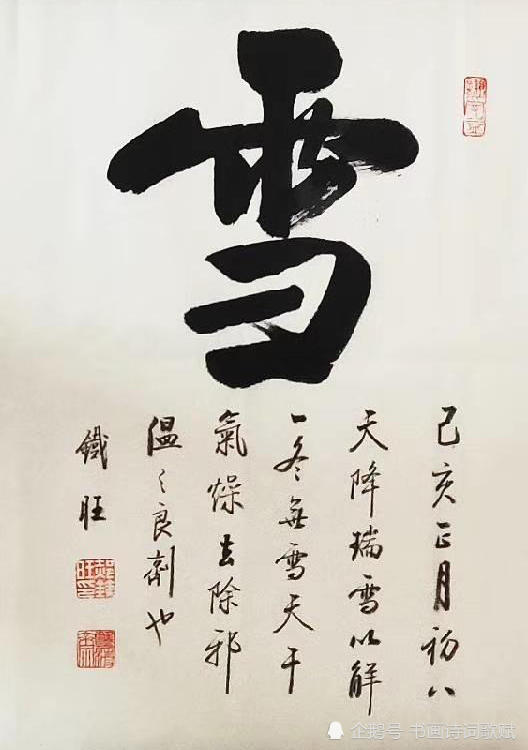 雪
己亥正月初八
天降瑞雪以解
一冬無雪天干
氣燥去除邪
温之良劑也
鐵旺
企鹅号 书画诗词歌赋